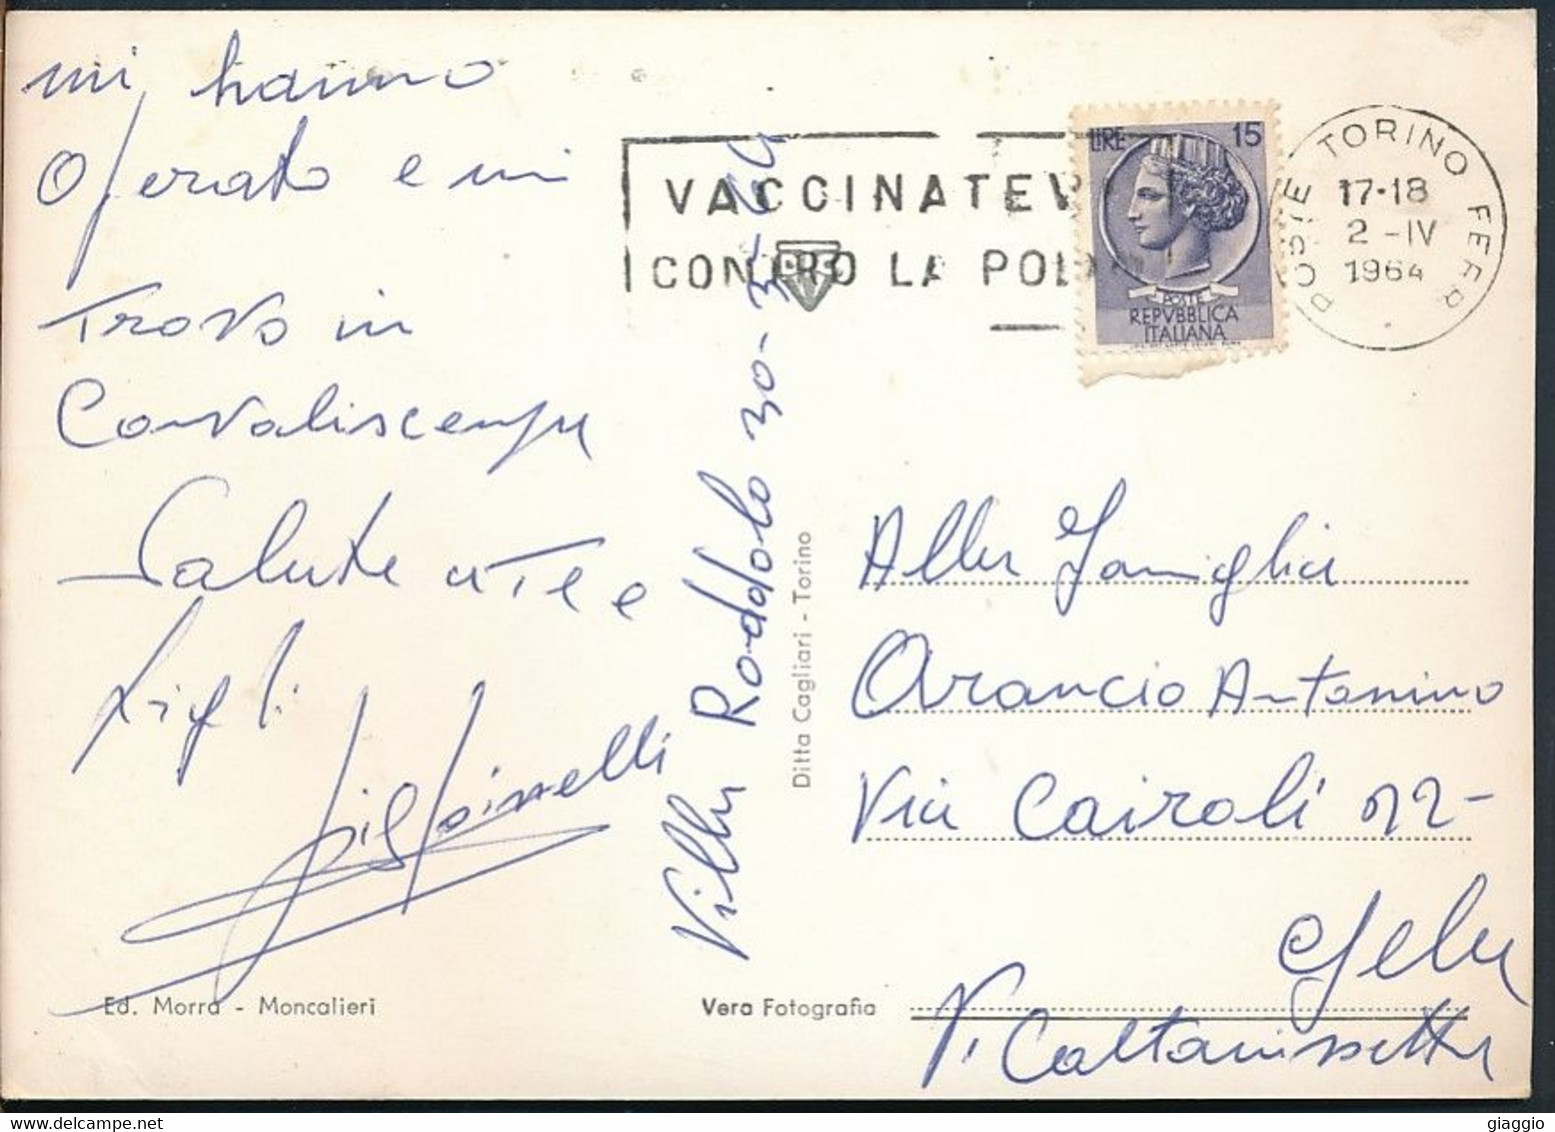 mi hanno
Operato e mi
Trovo in
Convaliscensa
Salute a Te e
Figli
Villa Roddolo 30-3-64
VACCINATEV
CONTRO LA POL
LIRE 15
POSTE
REPVBBLICA
ITALIANA
POSTE TORINO FERR
17-18
2 -IV
1964
Ditta Cagliari - Torino
Alla Famiglia
Arancio Antonino
Via Cairoli 22-
Gela
Caltanissetta
Ed. Morra - Moncalieri
Vera Fotografia
giaggio